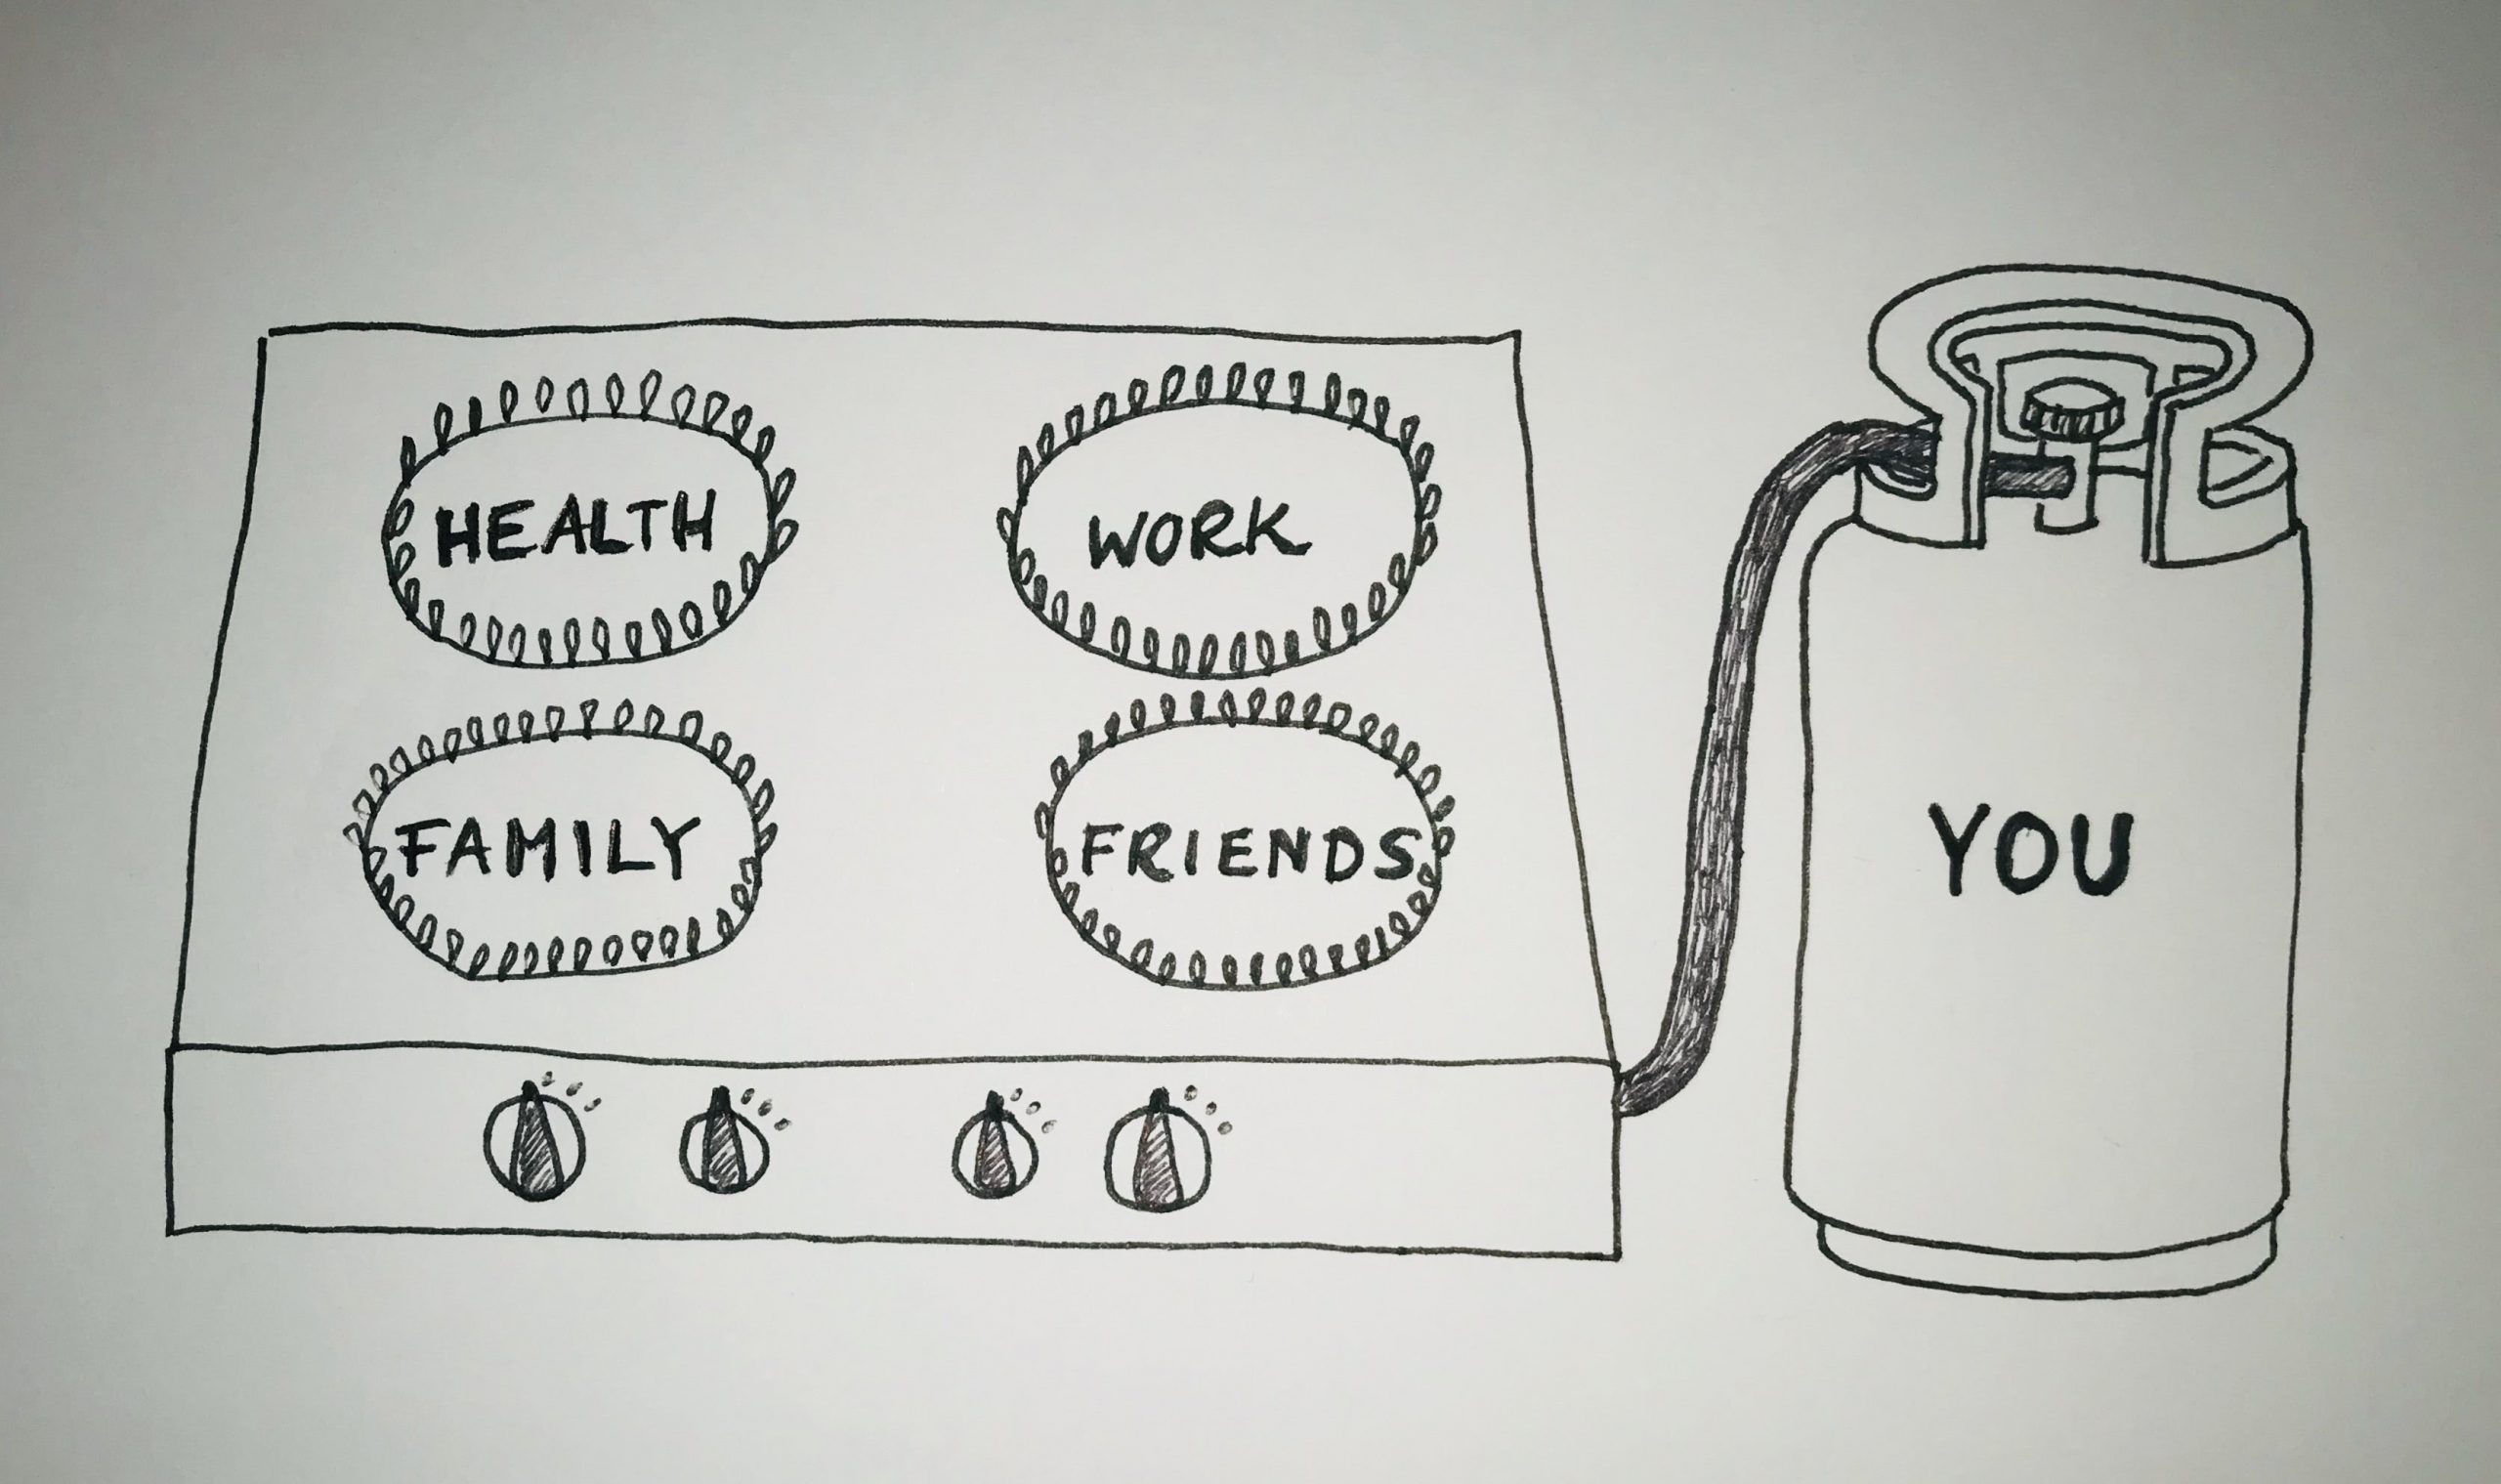 HEALTH
WORK
FAMILY
FRIENDS
YOU